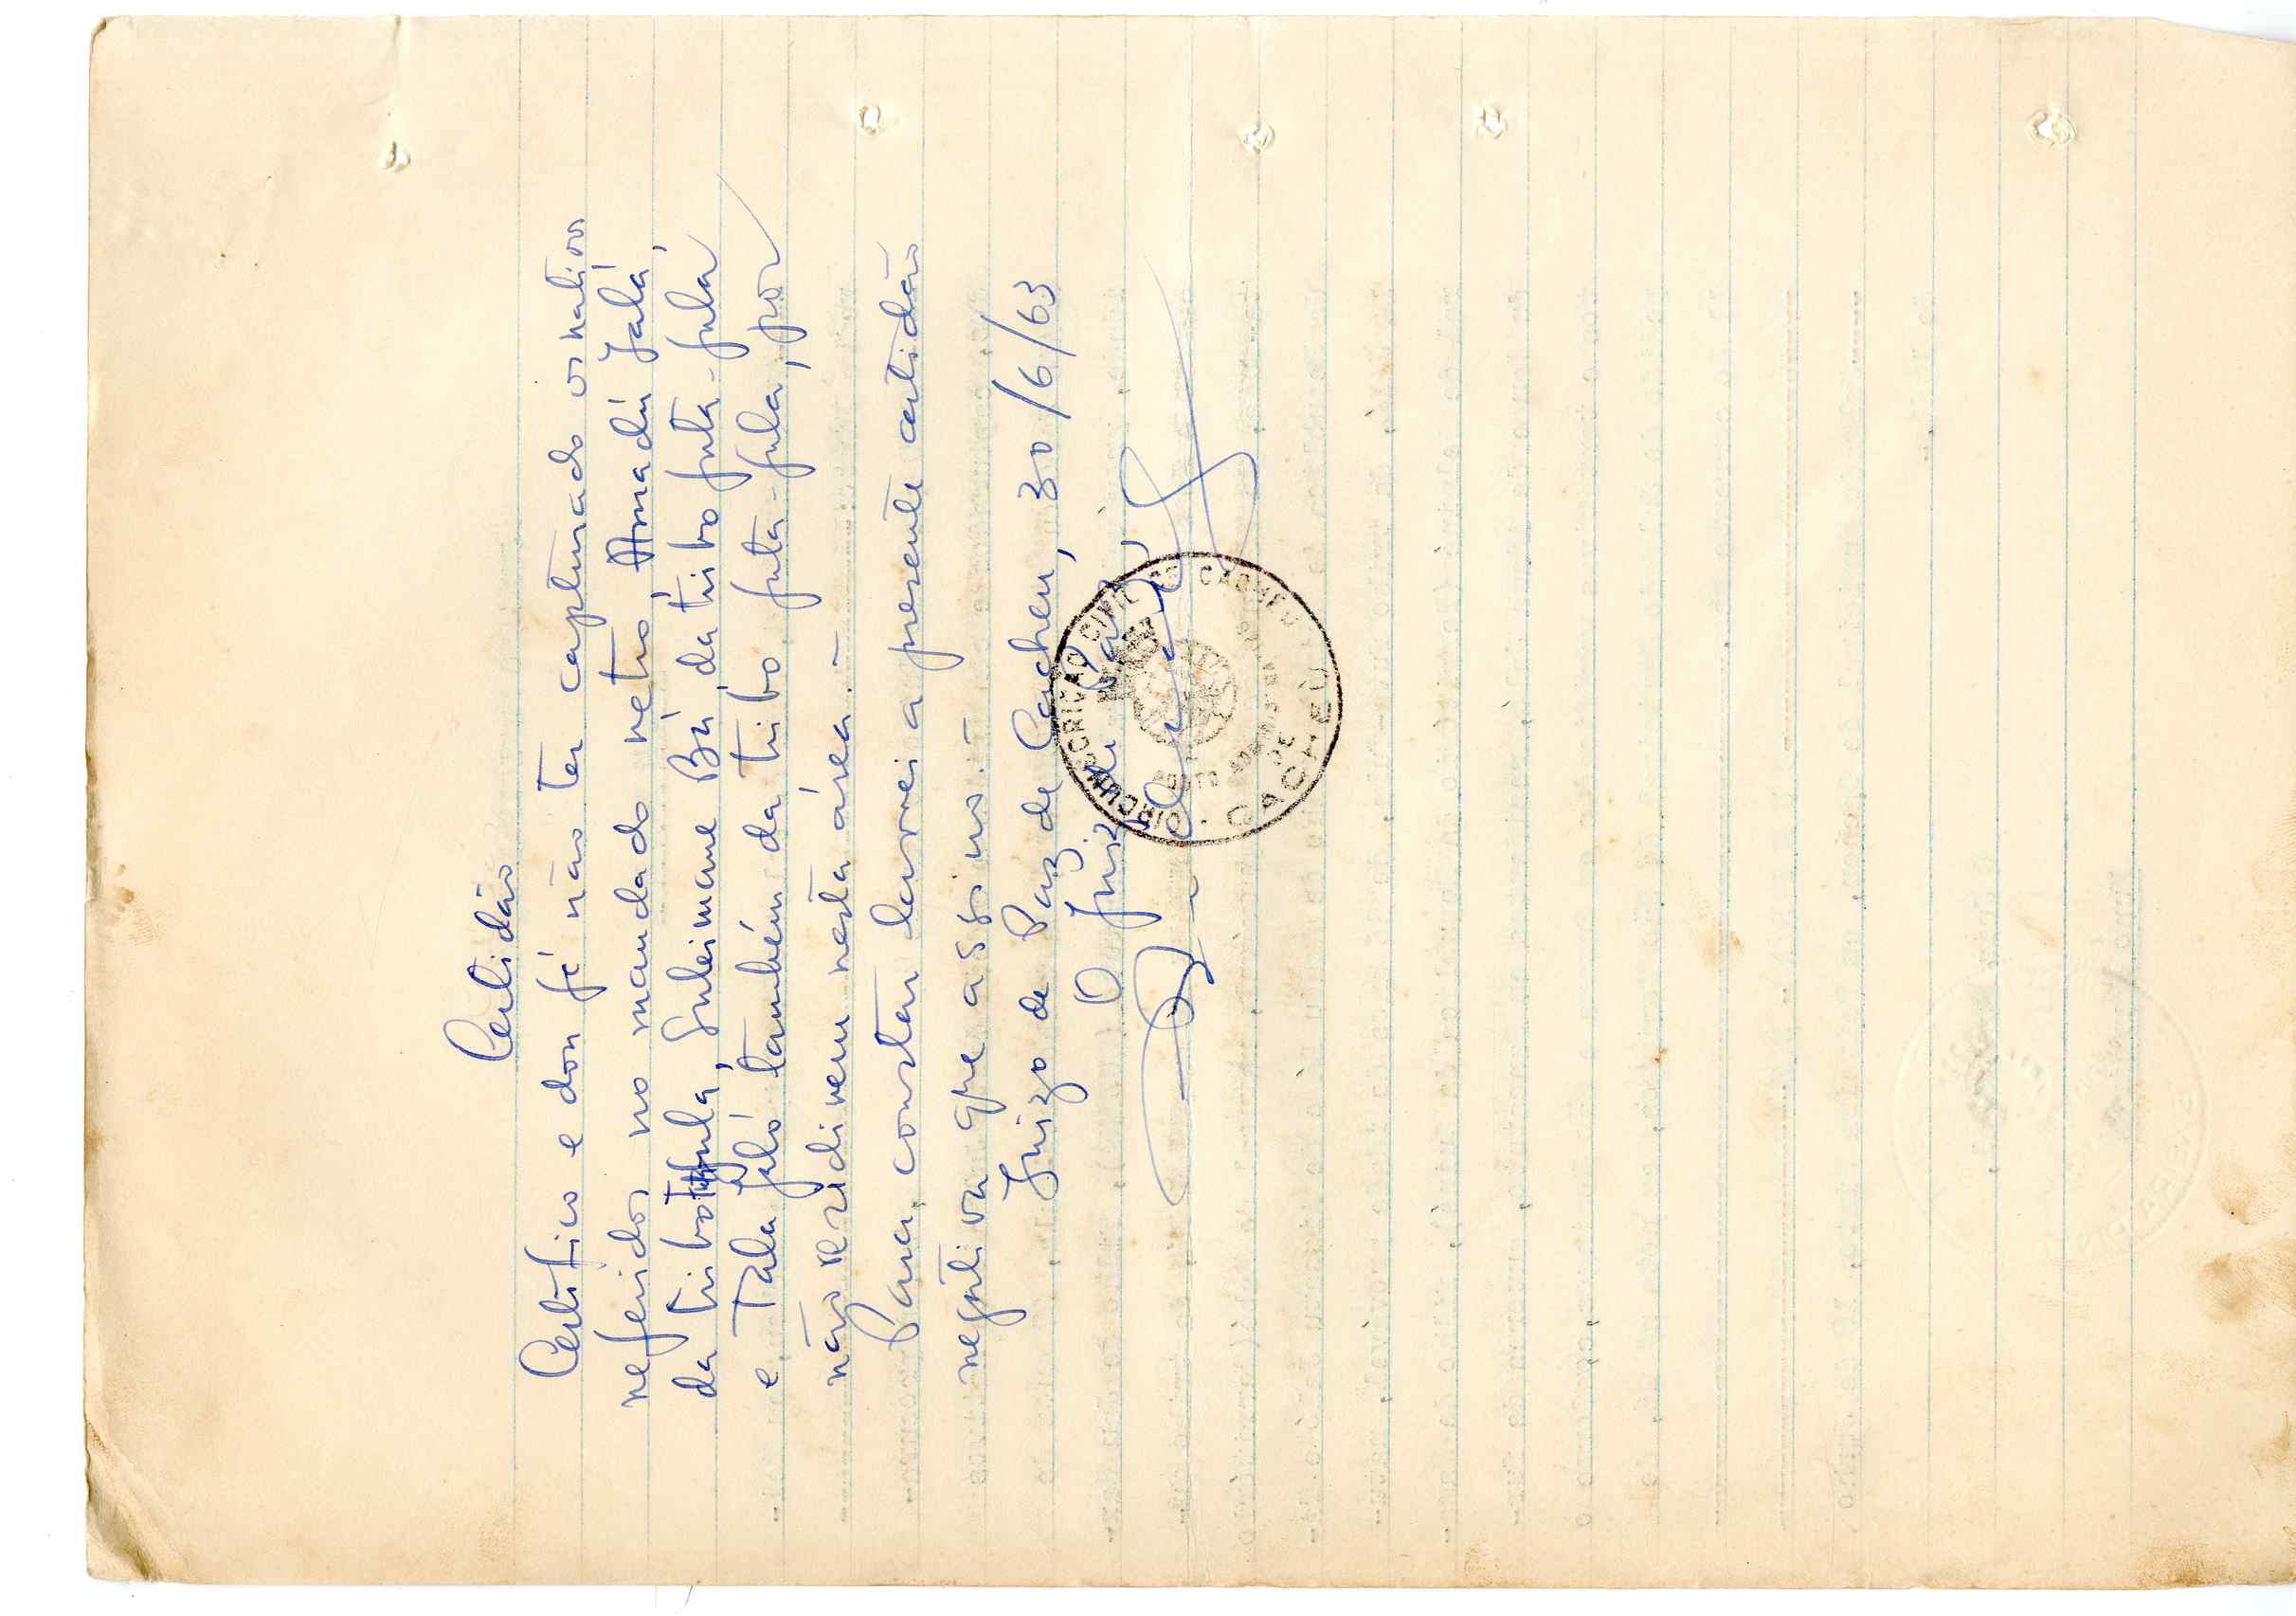 Certidão
Certifico e dou fé não ter capturado os nativos
referidos no mandado retro, Amadú Jaló,
da tribo fula, Suleimane Bá, da tribo futa-fula
e Tala Jaló também da tribo futa-fula, por
não residirem nesta área.-
Para constar lavrei a presente certidão
negativa que assino.-
Juizo de Paz de Cacheu, 30/6/63
O Juiz de Paz,
CIRCUNSCRIÇÃO CIVIL DE CACHEU
POSTO ADMINISTRATIVO
DE
CACHEU